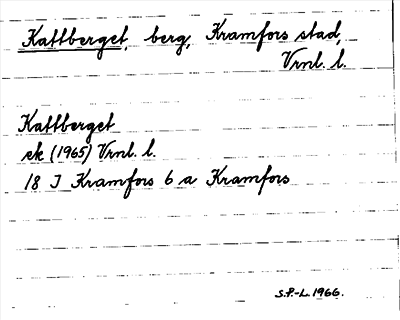 Kattberget, berg, Kramfors stad,
Vrnl. l.
Kattberget
ek (1965) Vrnl. l.
18 J Kramfors 6 a Kramfors
S.P.-L. 1966.